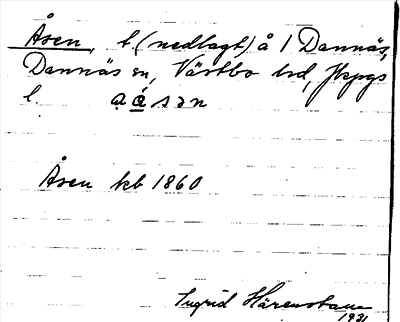 Åsen, t. (nedlagt) å 1 Dannäs,
Dannäs sn, Västbo hd, Jkpgs
l. a á sən
Åsen kb 1860
Ingrid Härenstam
1931